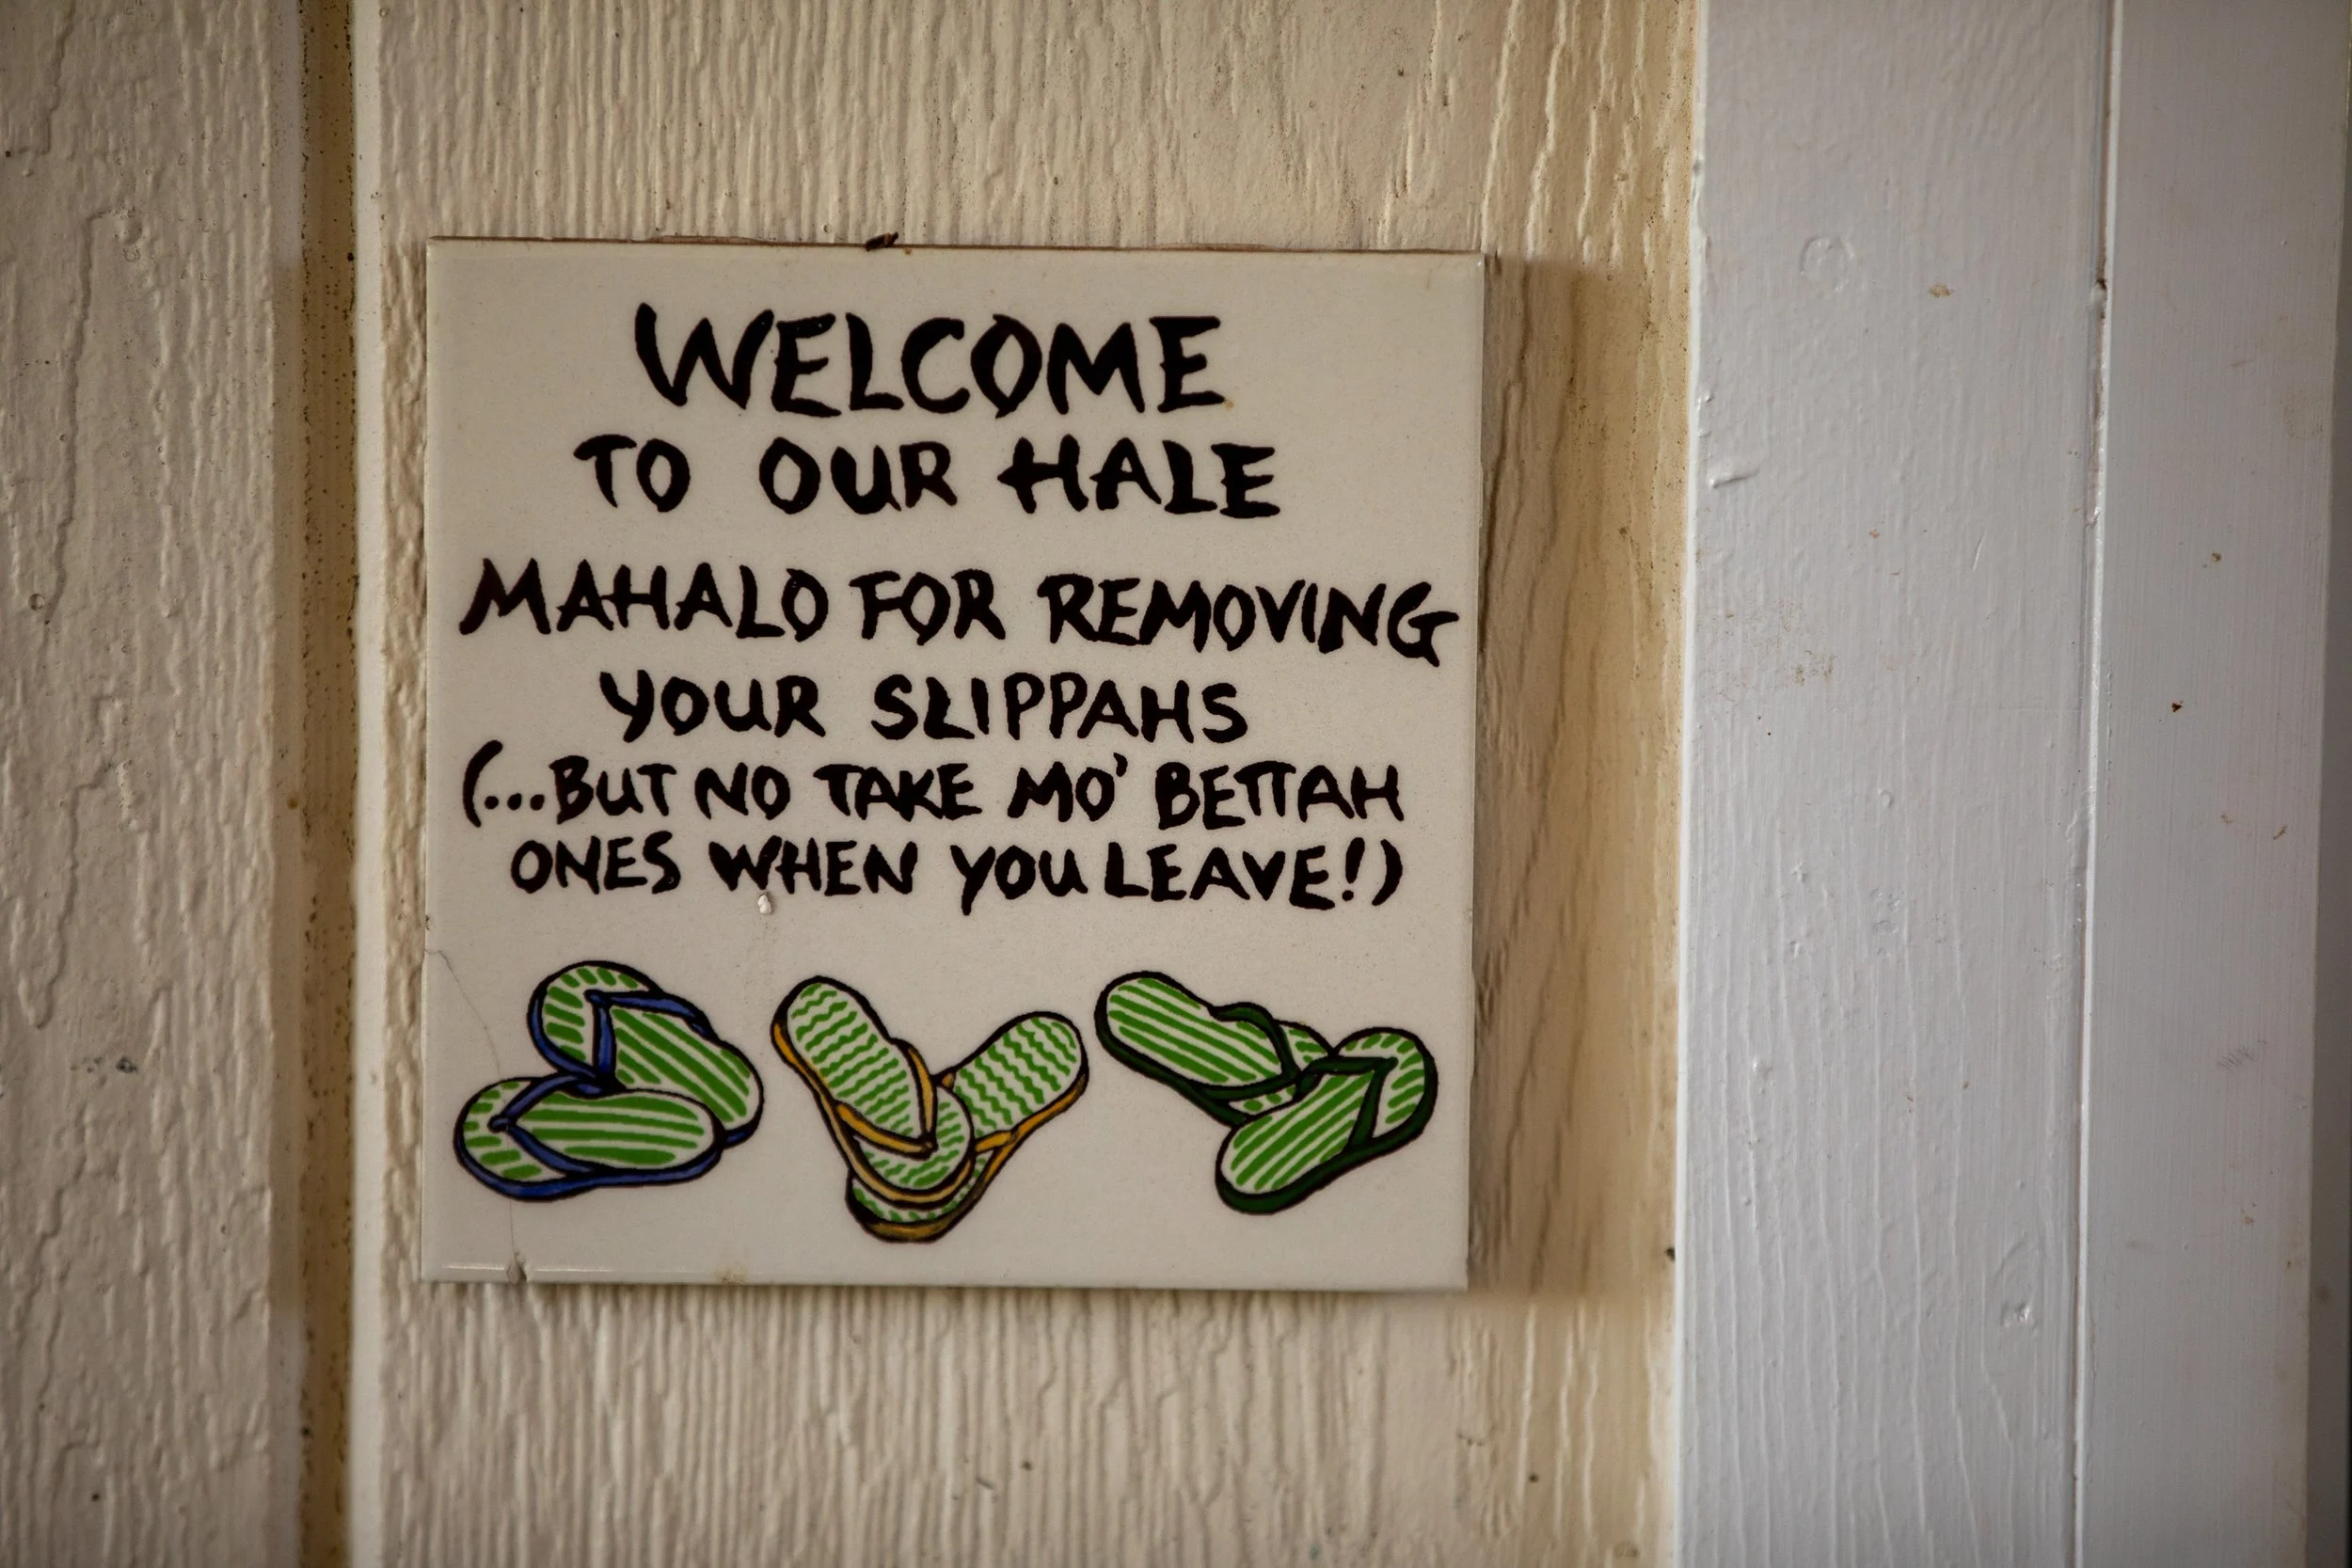 WELCOME
TO OUR HALE
MAHALO FOR REMOVING
YOUR SLIPPAHS
(...BUT NO TAKE MO' BETTAH
ONES WHEN YOU LEAVE!)